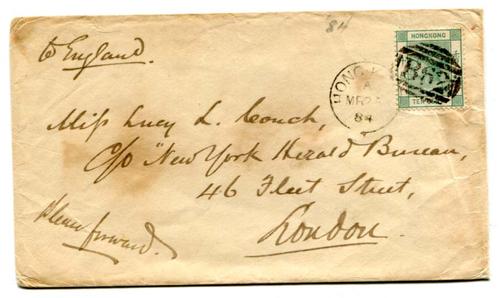 84
to England.
HONGKONG
B62
TEN
HONG K
A
MR 2
84
Miss Lucy L. Couch,
C/o "New York Herald" Bureau,
46 Fleet Street,
London.
Please forward.